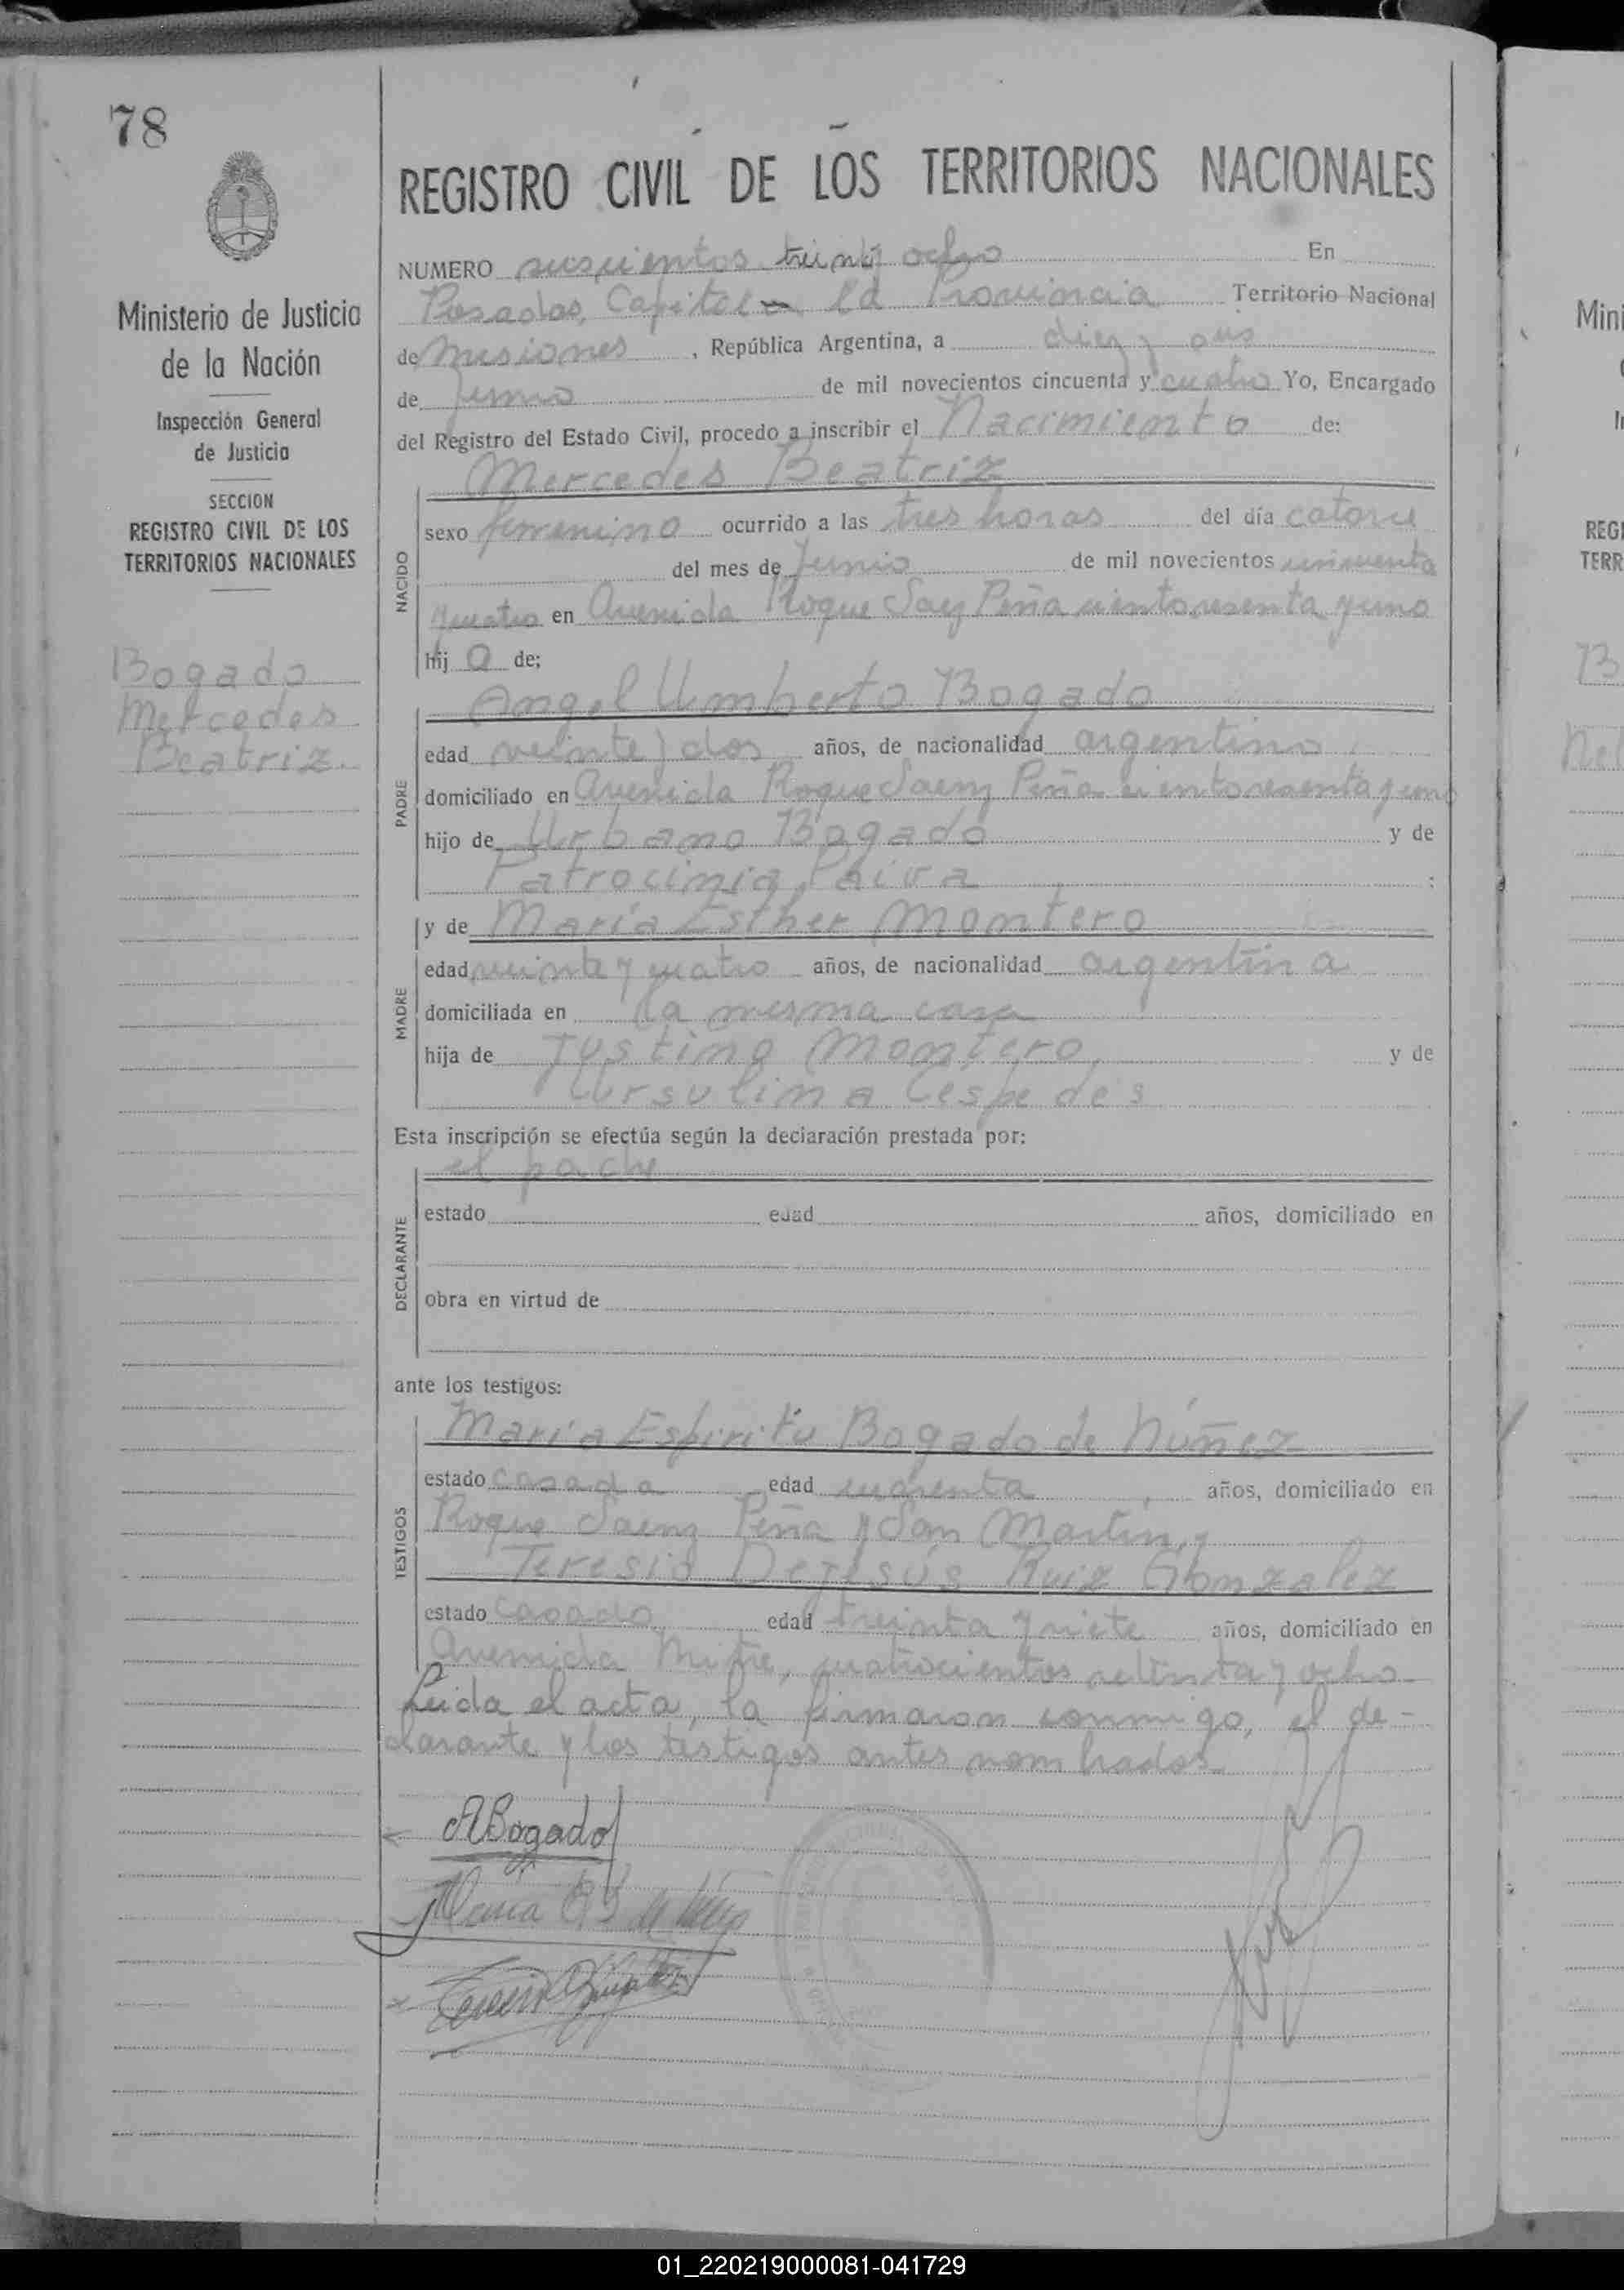 78
REGISTRO CIVIL DE LOS TERRITORIOS NACIONALES
Ministerio de Justicia
de la Nación
Inspección General
de Justicia
SECCION
REGISTRO CIVIL DE LOS
TERRITORIOS NACIONALES
Bogado
Mercedes
Beatriz.
NUMERO seiscientos treinta ocho En
Posadas, Capital la Provincia Territorio Nacional
de Misiones, República Argentina, a diez y seis
de Junio de mil novecientos cincuenta y cuatro Yo, Encargado
del Registro del Estado Civil, procedo a inscribir el Nacimiento de:
Mercedes Beatriz
NACIDO
sexo femenino ocurrido a las tres horas del día catorce
del mes de Junio de mil novecientos cincuenta
y cuatro en Avenida Roque Saenz Peña ciento sesenta y uno
hij a de;
Angel Umberto Bogado
PADRE
edad veinte y dos años, de nacionalidad argentino
domiciliado en Avenida Roque Saenz Peña ciento sesenta y uno
hijo de Urbano Bogado y de
Patrocinia Paiva :
y de María Esther Montero
MADRE
edad veinte y cuatro años, de nacionalidad argentina
domiciliada en la misma casa
hija de Justino Montero y de
Ursulina Cespedes
Esta inscripción se efectúa según la declaración prestada por:
el padre
DECLARANTE
estado edad años, domiciliado en
obra en virtud de
ante los testigos:
María Espiritu Bogado de Núñez
TESTIGOS
estado casada edad cuarenta años, domiciliado en
Roque Saenz Peña y San Martin, y
Teresio Dejesús Ruiz Gonzalez
estado casado edad treinta y siete años, domiciliado en
Avenida Mitre, cuatrocientos setenta y ocho
Leida el acta, la firmaron conmigo, el de-
clarante y los testigos antes nombrados.
ABogado
Maria
01_220219000081-041729